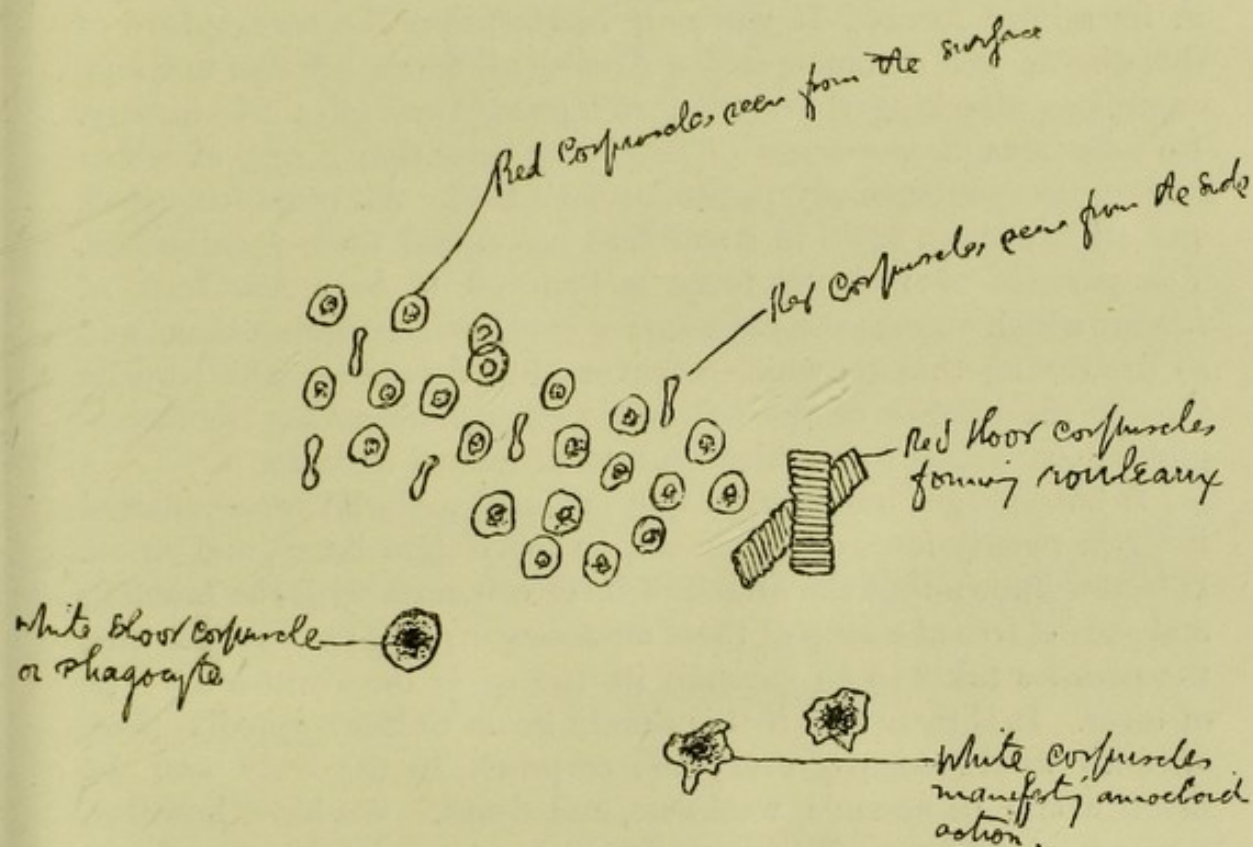 Red Corpuscles, seen from the surface
Red Corpuscles, seen from the side
Red blood corpuscles
forming rouleaux
White blood corpuscle
or Phagocyte
White corpuscles
manifestg amoeboid
action.